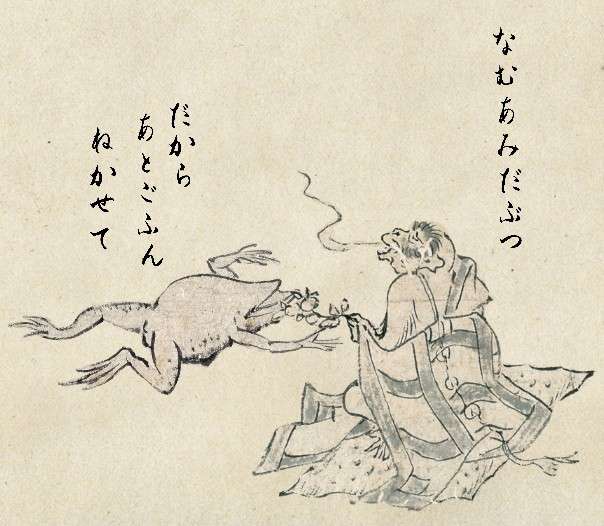 なむあみだぶつ
だから
あとごふん
ねかせて